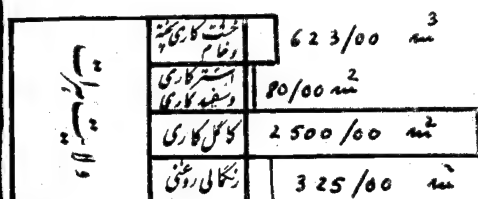 خشت کاری پخته
وخام
623/00 m³
استر کاری
وسفید کاری
80/00 m²
کاگل کاری
2500/00 m²
رنگمالی روغنی
325/00 m²